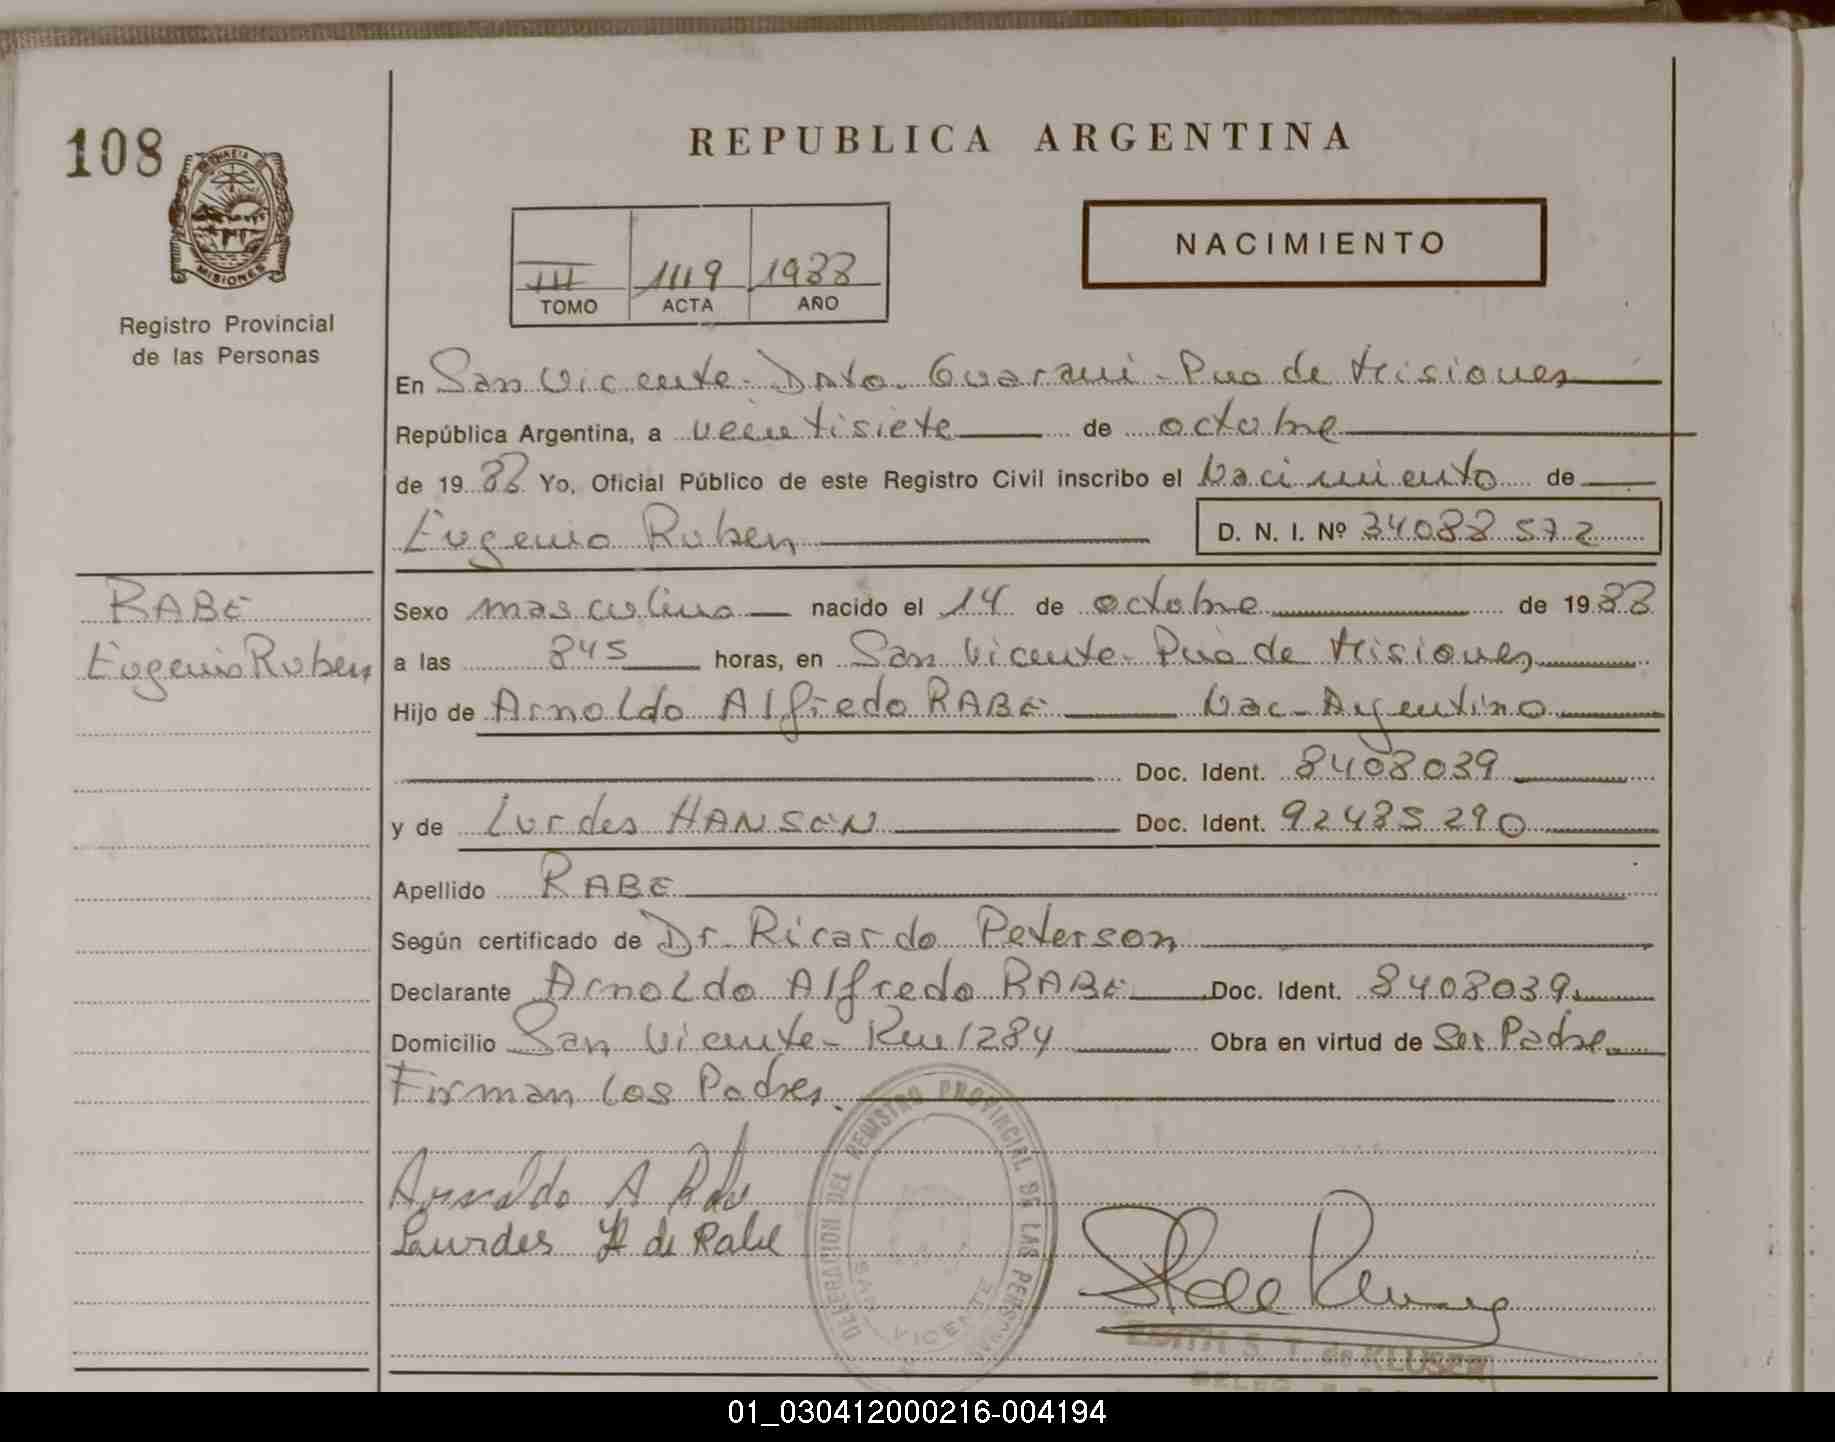 REPUBLICA ARGENTINA
108
PROVINCIA DE
MISIONES
NACIMIENTO
III 1119 1988
TOMO ACTA AÑO
Registro Provincial
de las Personas
En San Vicente - Dpto. Guaraní - Pcia de Misiones
República Argentina, a veintisiete de octubre
de 1988 Yo, Oficial Público de este Registro Civil inscribo el Nacimiento de
Eugenio Ruben D. N. I. Nº 34088572
RABE
Eugenio Ruben
Sexo masculino nacido el 14 de octubre de 1988
a las 845 horas, en San Vicente - Pcia de Misiones
Hijo de Arnoldo Alfredo RABE Nac - Argentino
Doc. Ident. 8408039
y de Lurdes HANSEN Doc. Ident. 92485290
Apellido RABE
Según certificado de Dr. Ricardo Peterson
Declarante Arnoldo Alfredo RABE Doc. Ident. 8408039
Domicilio San Vicente - Km 1284 Obra en virtud de Ser Padre
Firman los Padres.
DELEGACION DEL REGISTRO PROVINCIAL DE LAS PERSONAS
SAN VICENTE
Arnoldo A Rabe
Lourdes H de Rabe
EDITH S. T. de KLUSEN
01_030412000216-004194